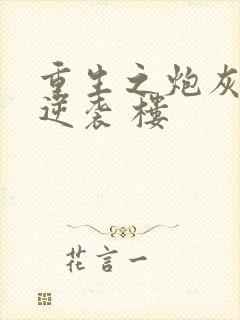 重生之炮灰
逆袭 楼
花言一